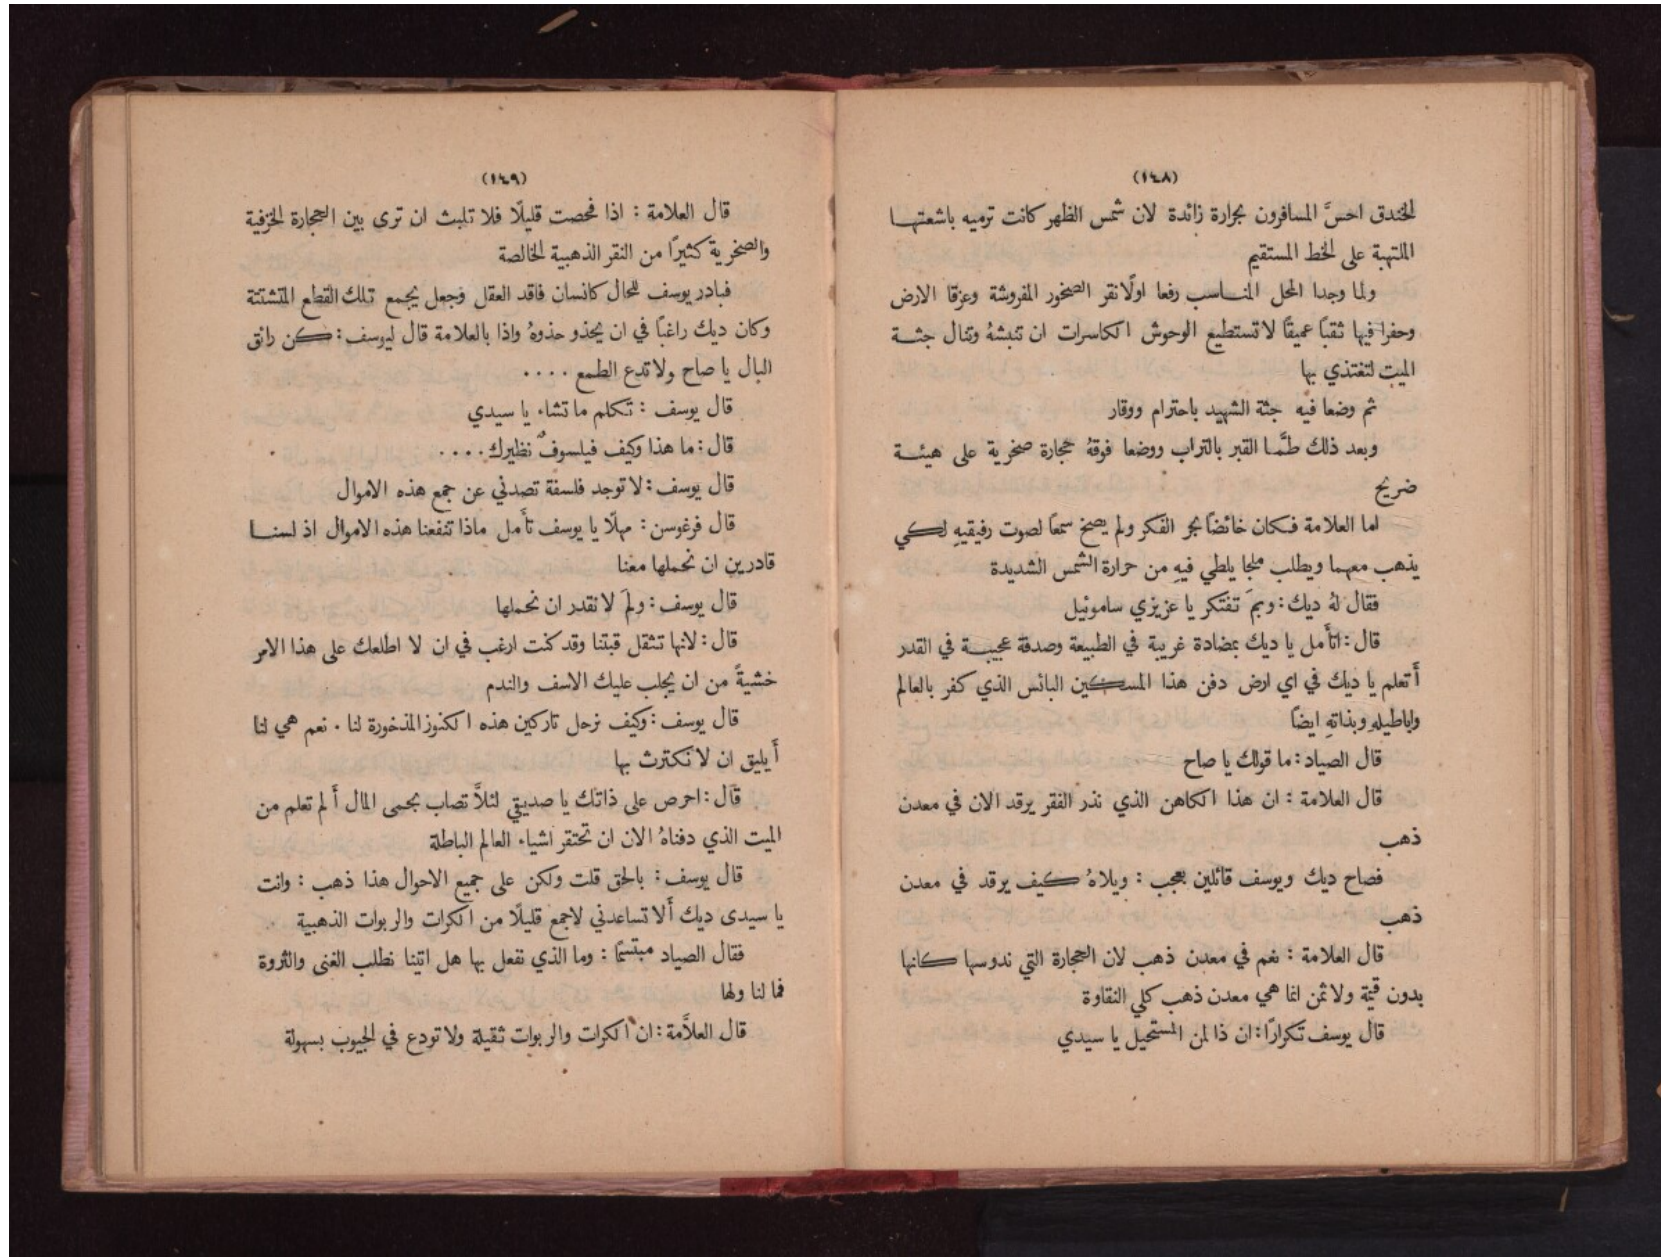 (١٤٨)
الخندق احسَّ المسافرون بحرارة زائدة لان شمس الظهر كانت ترميه باشعتهــا
الملتهبة على الخط المستقيم
ولما وجدا المحل المنــاسب رفعا اولًا نقر الصخور المفروشة وعزقا الارض
وحفرا فيها ثقبًا عميقًا لا تستطيع الوحوش الكاسرات ان تنبشهُ وتنال جثــة
الميت لتغتذي بها
ثم وضعا فيه جثة الشهيد باحترام ووقار
وبعد ذلك طمَّــا القبر بالتراب ووضعا فوقهُ حجارة صخرية على هيئــة
ضريح
اما العلامة فكان خائضًا بحر الفكر ولم يصخ سمعًا لصوت رفيقيهِ لكي
يذهب معهما ويطلب ملجا يلطي فيهِ من حرارة الشمس الشديدة
فقال لهُ ديك : وبمَ تفتكر يا عزيزي ساموئيل
قال : اتأَمل يا ديك بمضادة غريبة في الطبيعة وصدفة عجيبــة في القدر
أَتعلم يا ديك في اي ارض دفن هذا المسكين البائس الذي كفر بالعالم
واباطيلهِ وبذاتهِ ايضًا
قال الصياد : ما قولك يا صاح
قال العلامة : ان هذا الكاهن الذي نذر الفقر يرقد الان في معدن
ذهب
فصاح ديك ويوسف قائلين بعجب : ويلاهُ كيف يرقد في معدن
ذهب
قال العلامة : نعم في معدن ذهب لان الحجارة التي ندوسها كانها
بدون قيمة ولا ثمن انما هي معدن ذهب كلي النقاوة
قال يوسف تكرارًا : ان ذا لمن المستحيل يا سيدي
(١٤٩)
قال العلامة : اذا فحصت قليلًا فلا تلبث ان ترى بين الحجارة الخزفية
والصخرية كثيرًا من النقر الذهبية الخالصة
فبادر يوسف للحال كانسان فاقد العقل وجعل يجمع تلك القطع المتشتتة
وكان ديك راغبًا في ان يحذو حذوهُ واذا بالعلامة قال ليوسف : كن رائق
البال يا صاح ولا تدع الطمع ....
قال يوسف : تكلم ما تشاء يا سيدي
قال : ما هذا وكيف فيلسوفٌ نظيرك ....
قال يوسف : لا توجد فلسفة تصدني عن جمع هذه الاموال
قال فرغوسن : مهلًا يا يوسف تأَمل ماذا تنفعنا هذه الاموال اذ لسنــا
قادرين ان نحملها معنا
قال يوسف : ولمَ لا نقدر ان نحملها
قال : لانها تثقل قبتنا وقد كنت ارغب في ان لا اطلعك على هذا الامر
خشيةً من ان يجلب عليك الاسف والندم
قال يوسف : وكيف نرحل تاركين هذه الكنوز المذخورة لنا . نعم هي لنا
أَيليق ان لا نكترث بها
قال : احرص على ذاتك يا صديقي لئلَّا تصاب بحمى المال أَلم تعلم من
الميت الذي دفناهُ الان ان تحتقر اشياء العالم الباطلة
قال يوسف : بالحق قلت ولكن على جميع الاحوال هذا ذهب : وانت
يا سيدى ديك أَلا تساعدني لاجمع قليلًا من الكرات والربوات الذهبية
فقال الصياد مبتسمًا : وما الذي نفعل بها هل اتينا نطلب الغنى والثروة
فما لنا ولها
قال العلاَّمة : ان الكرات والربوات ثقيلة ولا تودع في الجيوب بسهولة